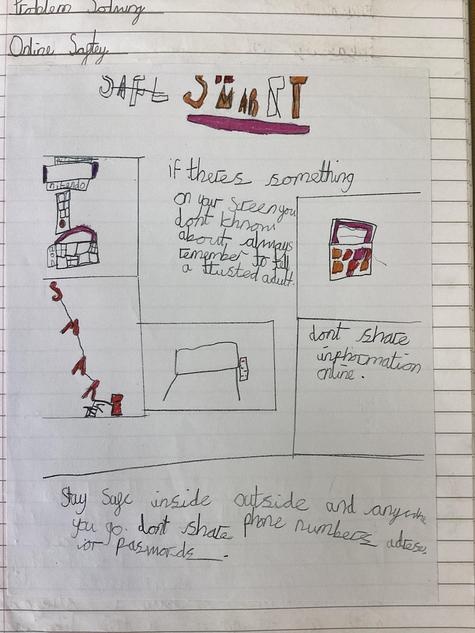 Problem Solving
Online Saftey
SAFE SMART
nintendo
if theres something
on your screen you
dont know
about, always
remember to tell
a trusted adult.
SMAR
dont share
inphormation
online.
Stay Safe inside outside and anywhere
you go. dont share phone numbers adreses
or passwords.